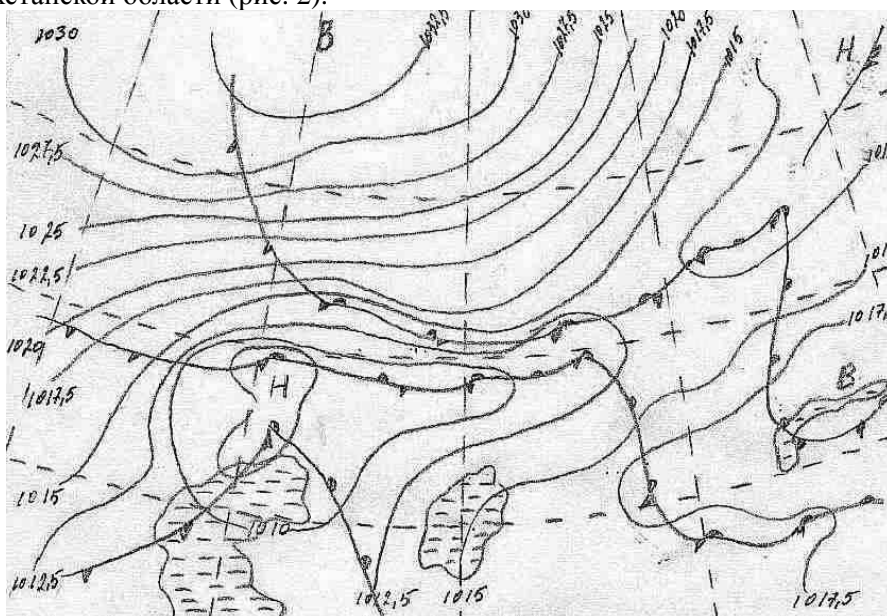 станской области (рис. 2).
1030
В
1022,5
1030
1027,5
1025
1020
1017,5
1015
Н
1027,5
1025
1022,5
1020
1017,5
1017,5
Н
В
1015
1010
1012,5
1012,5
1015
1017,5